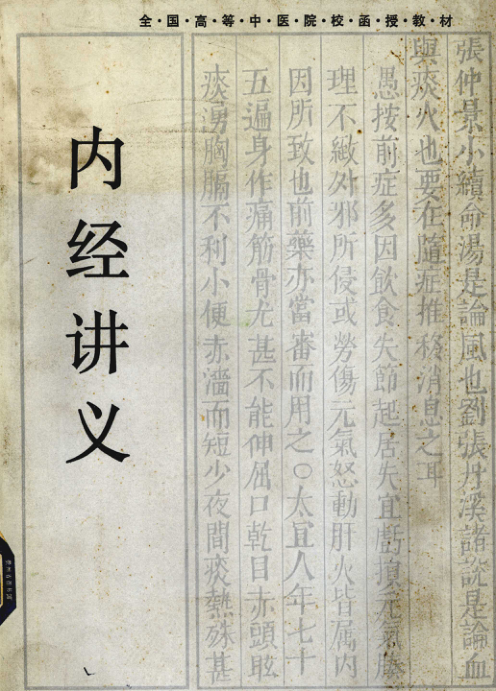 全·国·高·等·中·医·院·校·函·授·教·材
内经讲义
張仲景小續命湯是論風也劉張丹溪諸說是論血
與痰火也要在隨症推移消息之耳
愚按前症多因飲食失節起居失宜虧損元氣腠
理不緻外邪所侵或勞傷元氣怒動肝火皆属内
因所致也前藥亦當審而用之○太宜人年七十
五遍身作痛筋骨尤甚不能伸屈口乾目赤頭眩
痰湧胸膈不利小便赤濇而短少夜間痰熱殊甚